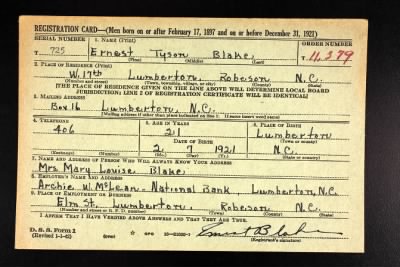 REGISTRATION CARD—(Men born on or after February 17, 1897 and on or before December 31, 1921)
SERIAL NUMBER 1. NAME (Print) ORDER NUMBER
T 725 Ernest Tyson Blake. T 11,379
(First) (Middle) (Last)
2. PLACE OF RESIDENCE (Print)
W. 17th Lumberton, Robeson N.C.
(Number and street) (Town, township, village, or city) (County) (State)
[THE PLACE OF RESIDENCE GIVEN ON THE LINE ABOVE WILL DETERMINE LOCAL BOARD
JURISDICTION; LINE 2 OF REGISTRATION CERTIFICATE WILL BE IDENTICAL]
3. MAILING ADDRESS
Box 16 Lumberton, N.C.
[Mailing address if other than place indicated on line 2. If same insert word same]
4. TELEPHONE 5. AGE IN YEARS 6. PLACE OF BIRTH
406 21 Lumberton
DATE OF BIRTH (Town or county)
2 7 1921 N.C.
(Exchange) (Number) (Mo.) (Day) (Yr.) (State or country)
7. NAME AND ADDRESS OF PERSON WHO WILL ALWAYS KNOW YOUR ADDRESS
Mrs Mary Louise Blake.
8. EMPLOYER'S NAME AND ADDRESS
Archie W. McLean. National Bank Lumberton, N.C.
9. PLACE OF EMPLOYMENT OR BUSINESS
Elm St. Lumberton, Robeson N.C.
(Number and street or R. F. D. number) (Town) (County) (State)
I AFFIRM THAT I HAVE VERIFIED ABOVE ANSWERS AND THAT THEY ARE TRUE.
D. S. S. Form 1
(Revised 1-1-42) (over) Ernest Blake
(Registrant's signature)